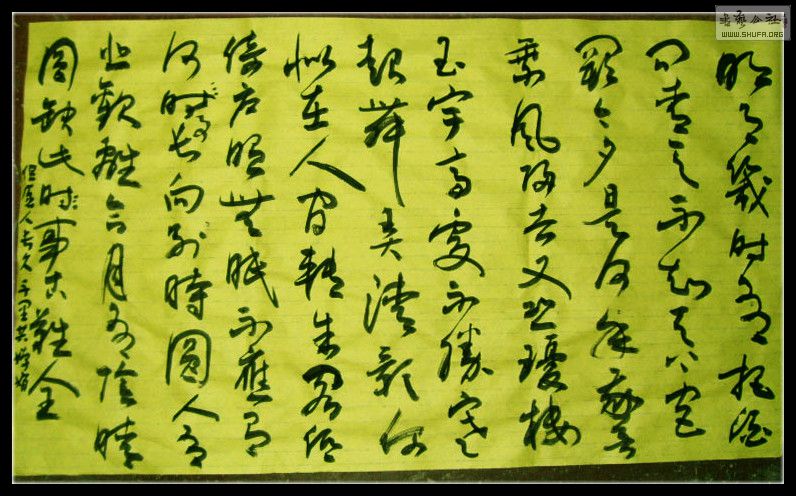 明月幾时有把酒
问青天不知天上宫
闕今夕是何年我欲
乘风归去又恐瓊楼
玉宇高处不勝寒
起舞弄清影何
似在人间轉朱阁低
绮户照無眠不應有
何时事长向别時圆人有
悲歡離合月有陰晴
圆缺此时事古難全
但愿人长久千里共嬋娟
書藝公社
WWW.SHUFA.ORG